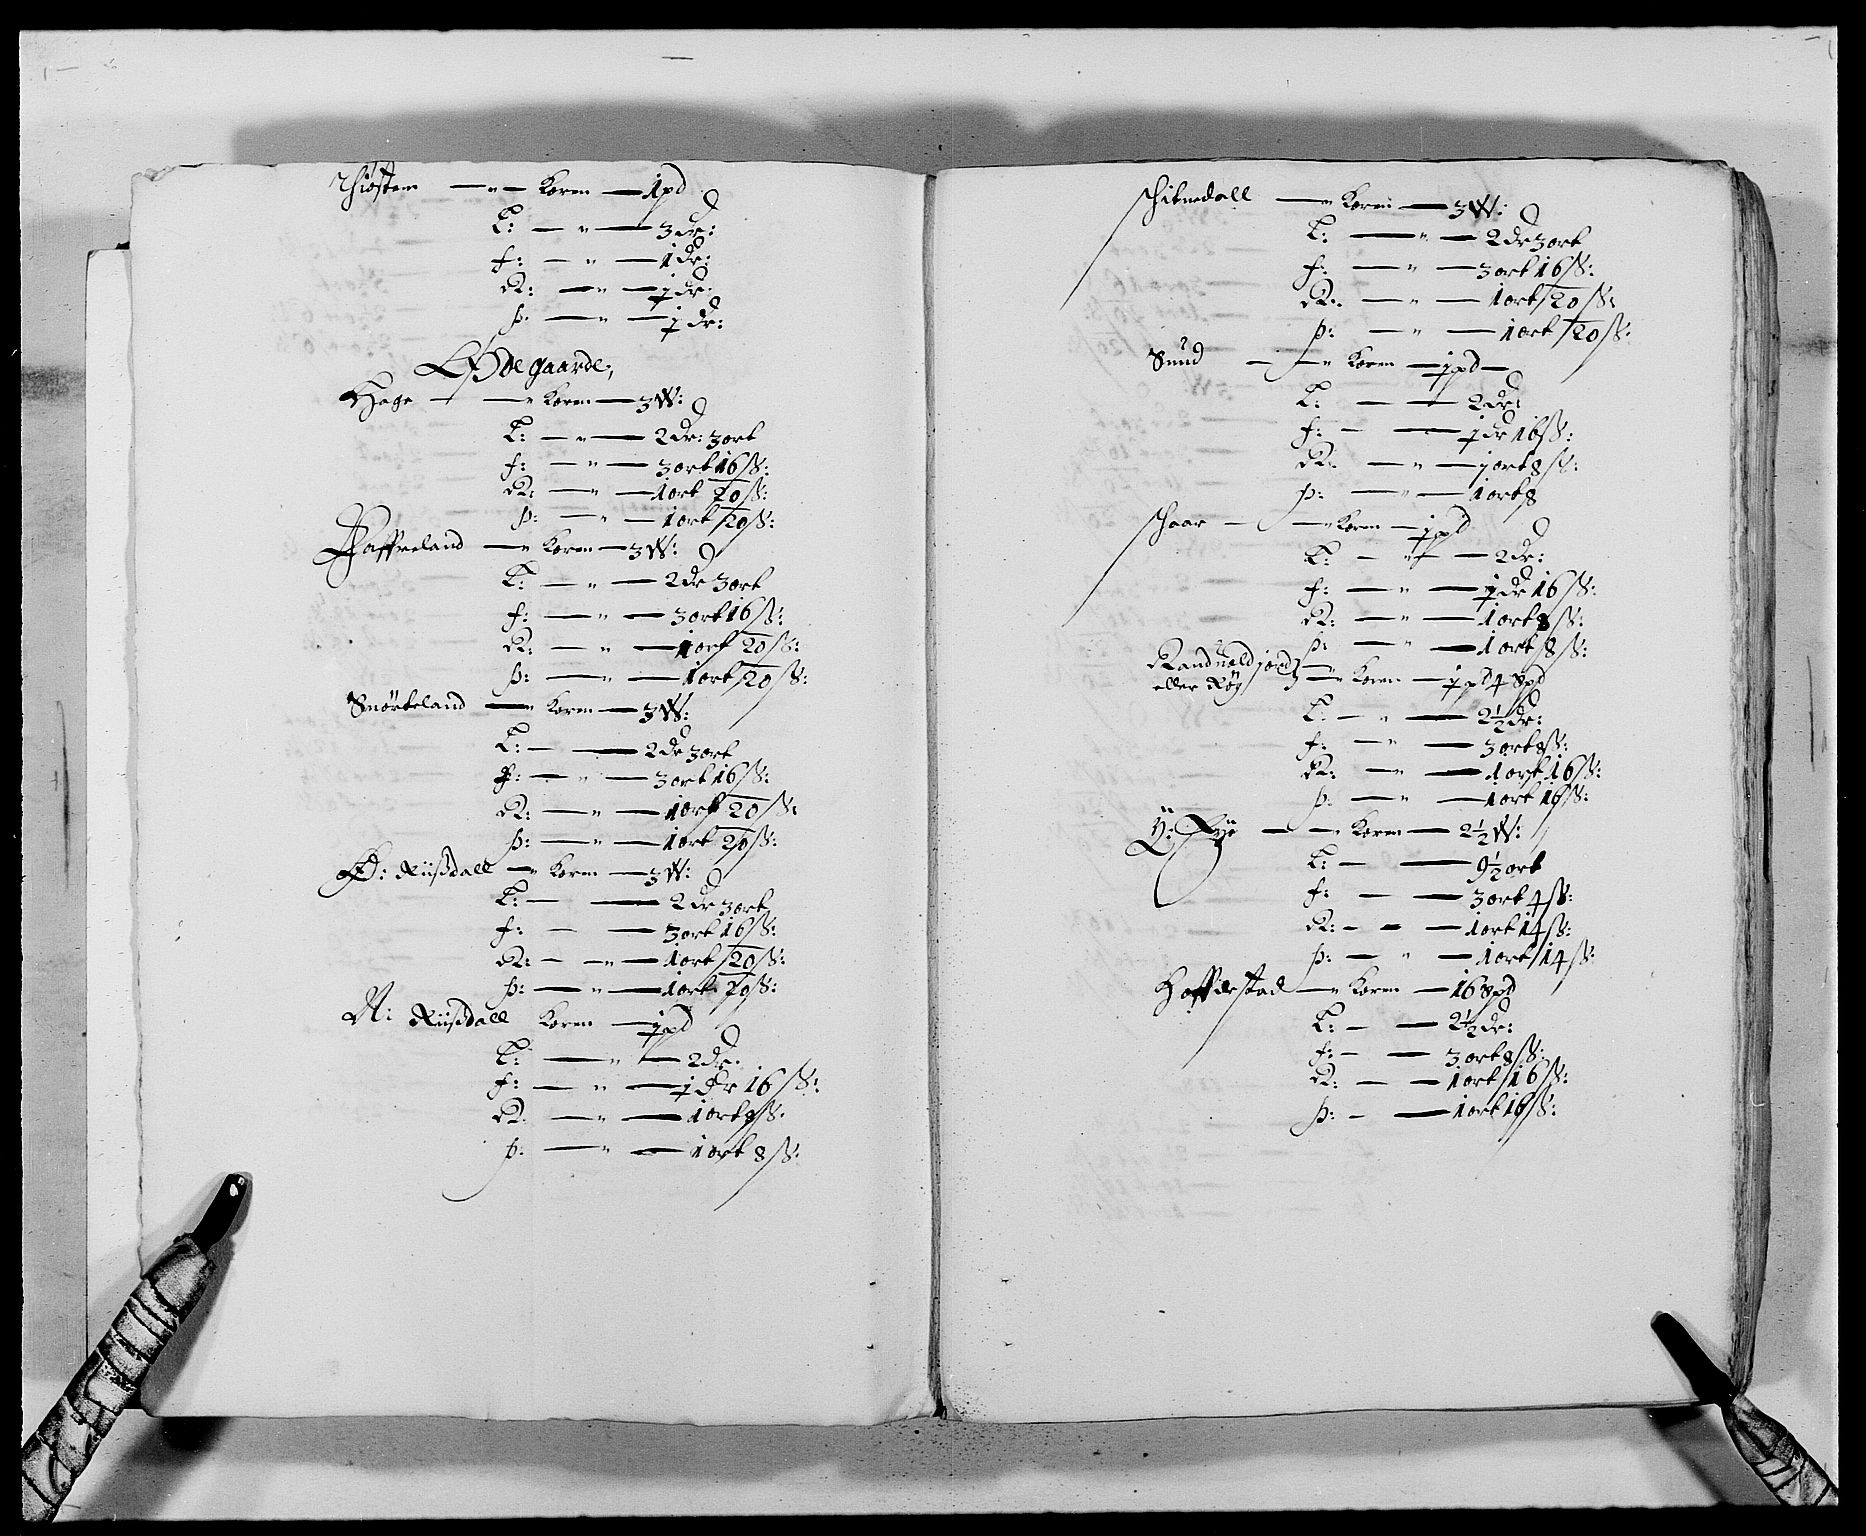 Thiøstem — " — Koren — 1pd
L: — " — 3dr:
f: — " — 1dr:
R: — " — 1dr:
þ: — " — 1dr:
Øde gaarde,
Hage — — " Koren — 3W:
L: — " — 2dr: 3ort
f: — " — 3ort 16ß:
R: — " — 1ort 20ß:
þ: — " — 1ort 20ß:
Haffreland — " Koren — 3W:
L: — " — 2dr 3ort
f: — " — 3ort 16ß:
R: — " — 1ort 20ß:
þ: — " — 1ort 20ß:
Snörteland — " Koren — 3W:
L: — — 2dr 3ort
f: — " — 3ort 16ß:
R: — " — 1ort 20ß:
þ: — " — 1ort 20ß:
Ø: Riisdall — " Koren — 3W:
L: — — 2dr 3ort
f: — — 3ort 16ß:
R: — " — 1ort 20ß:
þ: — " — 1ort 20ß:
N: Riisdall Koren — 1pd
L: — " — 2dr.
f: — " — 1dr 16ß:
R: — " — 1ort 8ß:
þ: — " — 1ort 8ß:
Schibnedall — " Koren — 3W:
L: — " — 2dr 3ort
f: — " — 3ort 16ß:
R: — " — 1ort 20ß:
þ: — " — 1ort 20ß:
Snud — — " Koren — 1pd —
L: — " — 2dr:
f: — — 1dr 16ß:
R: — " — 1ort 8ß:
þ: — " — 1ort 8
Schaar — — " Koren — 1pd
L: — " — 2dr:
f: — " — 1dr 16ß:
R: — " — 1ort 8ß:
þ: — " — 1ort 8ß:
Randuald jord
eller Røg — " Koren — 1pd 4 8pd
L: — " — 2½dr:
f: — " — 3ort 8ß:
R: — " — 1ort 16ß:
þ: — " — 1ort 16ß:
Y: Eye — — " Koren — 2½W:
L: — — 9½ort
f: — — 3ort 4ß:
R: — — 1ort 14ß:
þ: — " — 1ort 14ß:
Hoffdestad — " Koren — 16 8pd
L: — — 2½dr:
f: — — 3ort 8ß:
R: — — 1ort 16ß:
þ: — — 1ort 16ß: